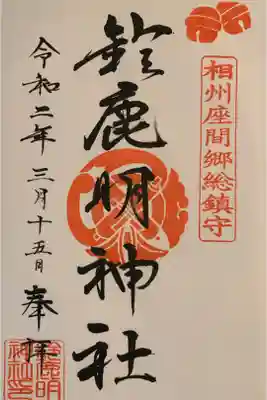 相州座間郷総鎮守
鈴鹿明神社
令和二年三月十五日
奉拝
鈴鹿明
神社印